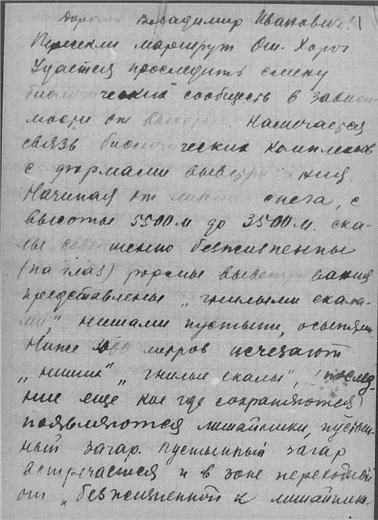 Дорогой Владимир Иванович!
Пересекли маршрут Ош-Хорог
Удается проследить смену
биологический сообществ в зависи
мости от высоты. Намечается
связь биологических комплексов
с формами выветривания
Начиная от линии снега, с
высоты 5500 м до 3500 м. ска-
лы совершенно безжизненны
(на глаз) формы выветривания
представлены „гнилыми скала-
ми", нишами пустыни, осыпями
Ниже метров исчезают
„ниши" „гнилые скалы", (послед-
ние еще кое где сохраняются)
появляются лишайники, пустын-
ный загар. Пустынный загар
встречается и в зоне переходной
от „безжизненной к лишайник